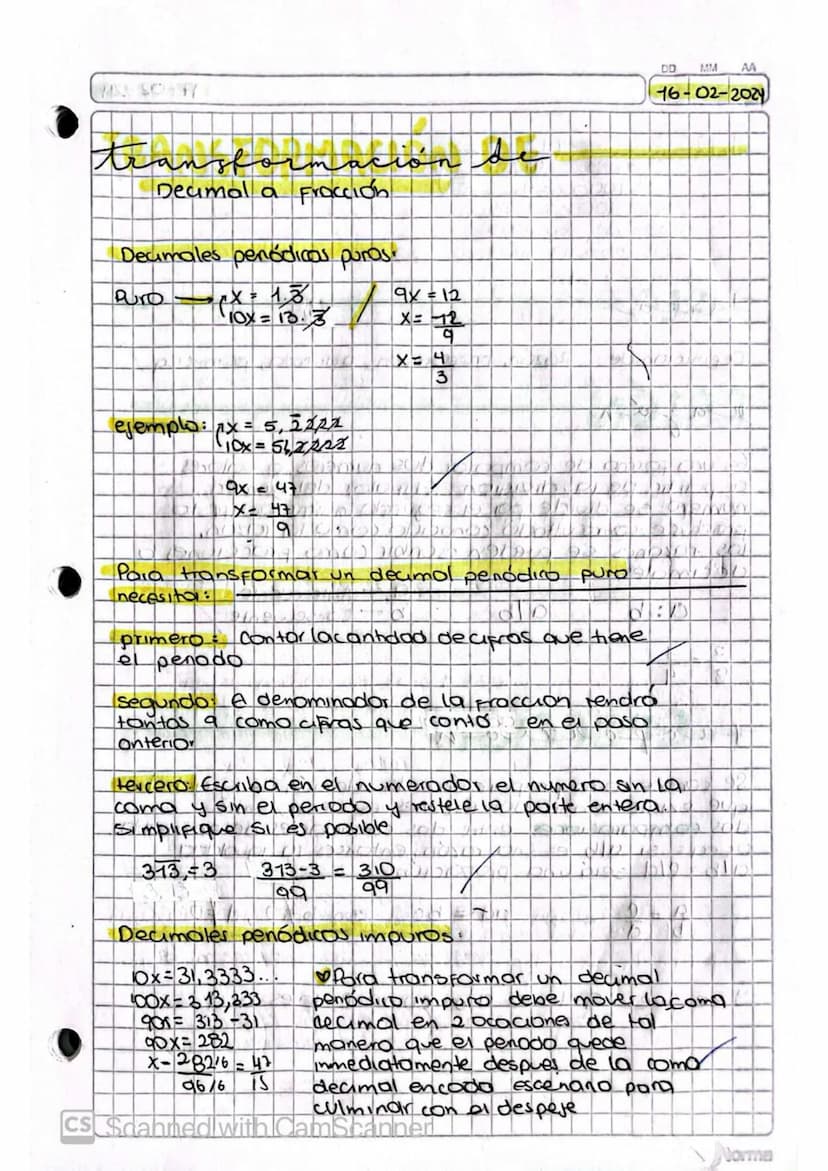 DD MM AA
16-02-2024
TRANSFORMACIÓN DE
transformación de
Decimal a Fracción
Decimales periódicos puros:
Puro → x = 1.3̅ 9x = 12
10x = 13.3̅ x = 12/9
x = 4/3
ejemplo: x = 5,2̅222
10x = 52,2222
9x = 47
x = 47/9
Para transformar un decimal periódico puro
necesita:
primero: Contar la cantidad de cifras que tiene
el periodo
segundo: El denominador de la Fracción tendrá
tantas 9 como cifras que contó en el paso
anterior
tercero: Escriba en el numerador el numero sin la
coma y sin el periodo y restele la parte entera.
Simplifique si es posible
313-3/99 = 310/99
Decimales periódicos impuros:
10x=31,3333... Para transformar un decimal
100x=313,333 periódico impuro debe mover la coma
90x= 313-31 decimal en 2 ocaciones de tal
90x=282 manera que el periodo quede
x-282/6 = 47 immediatamente despues de la coma
96/6 15 decimal en cada escenario para
culminar con el despeje
CS Scanned with CamScanner
Norma